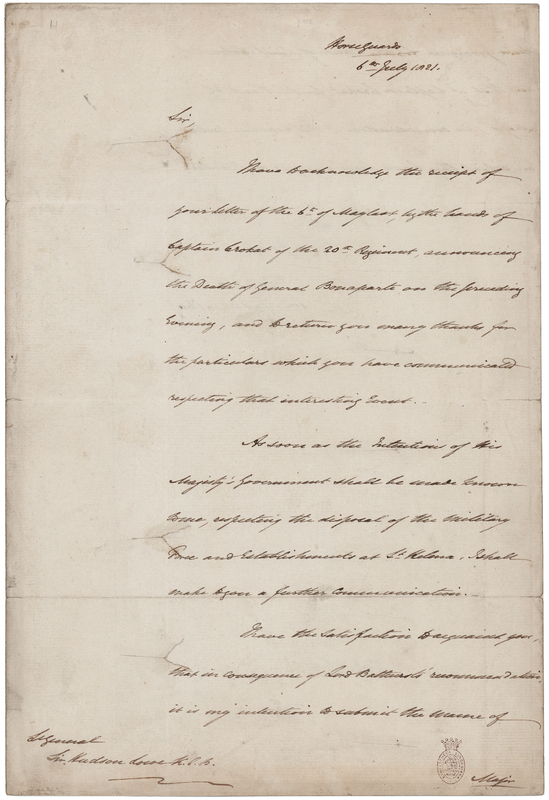 Horse Guards
6th July 1821.
Sir,
I have to acknowledge the receipt of
your letter of the 6th of May last, by the hands of
Captain Crokat of the 20th Regiment, announcing
the Death of General Bonaparte on the preceding
Evening, and to return you many thanks for
the particulars which you have communicated
respecting that interesting Event.—
As soon as the Intentions of His
Majesty's Government shall be made known
to me, respecting the disposal of the Military
Force and Establishments at St Helena, I shall
make to you a further communication.—
I have the satisfaction to acquaint you,
that in consequence of Lord Bathurst's recommendation,
it is my intention to submit the name of
Lt General
Sir Hudson Lowe K.C.B.
Major